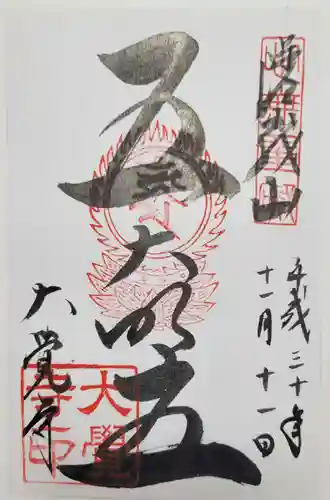 嵯峨山
五大明王
平成三十年
十一月十一日
大覺寺
大覺寺印